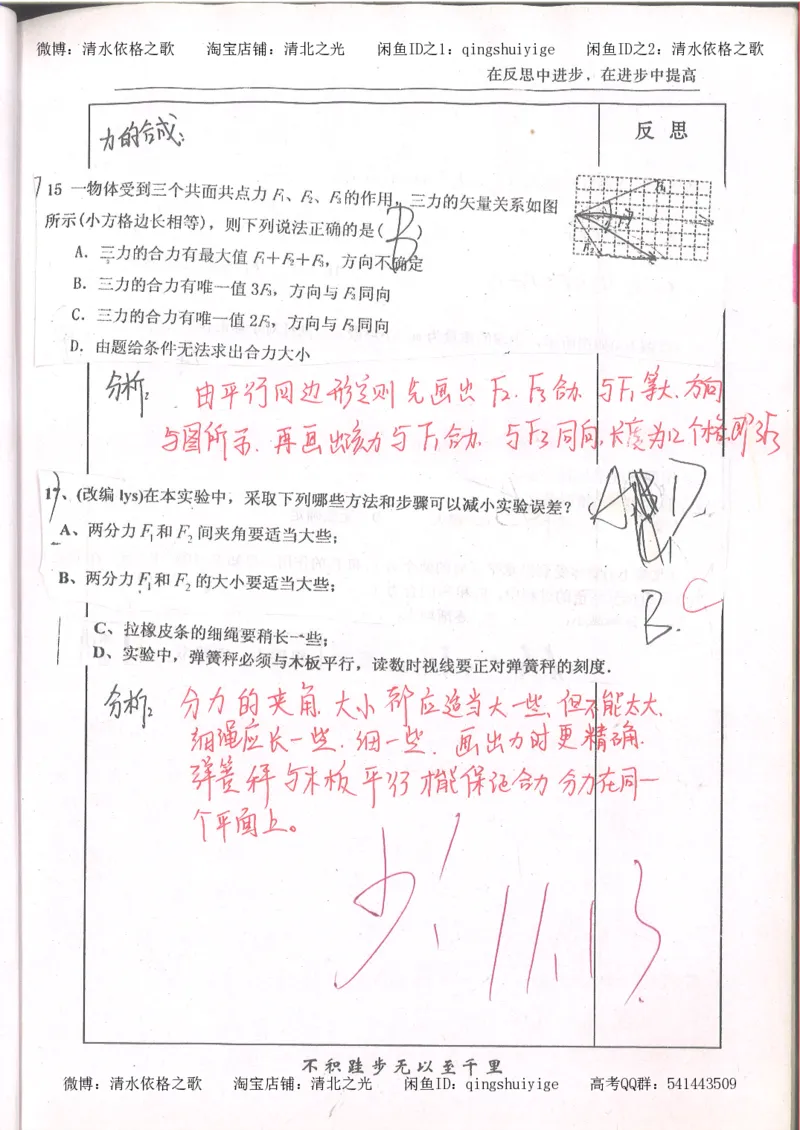 微博：清水依格之歌 淘宝店铺：清北之光 闲鱼ID之1：qingshuiyige 闲鱼ID之2：清水依格之歌
在反思中进步，在进步中提高
力的合成：
反 思
15 一物体受到三个共面共点力 F₁、F₂、F₃的作用，三力的矢量关系如图
所示(小方格边长相等)，则下列说法正确的是( B )
A．三力的合力有最大值 F₁＋F₂＋F₃，方向不确定
B．三力的合力有唯一值 3F₃，方向与 F₃同向
C．三力的合力有唯一值 2F₃，方向与 F₃同向
D．由题给条件无法求出合力大小
分析：由平行四边形定则先画出 F₂、F₃合力，与F₁等大，方向
与图所示．再画出该力与F₁合力．与F₃同向，长度为12个格，即3F₃
17、(改编 lys)在本实验中，采取下列哪些方法和步骤可以减小实验误差？
A、两分力 F₁和 F₂ 间夹角要适当大些；
B、两分力 F₁和 F₂ 的大小要适当大些；
B. C
C、拉橡皮条的细绳要稍长一些；
D、实验中，弹簧秤必须与木板平行，读数时视线要正对弹簧秤的刻度．
分析：分力的夹角、大小都应适当大一些，但不能太大．
细绳应长一些．细一些．画出力时更精确．
弹簧秤与木板平行才能保证合力分力在同一
个平面上。
少 11.13
不积跬步无以至千里
微博：清水依格之歌 淘宝店铺：清北之光 闲鱼ID：qingshuiyige 高考QQ群：541443509